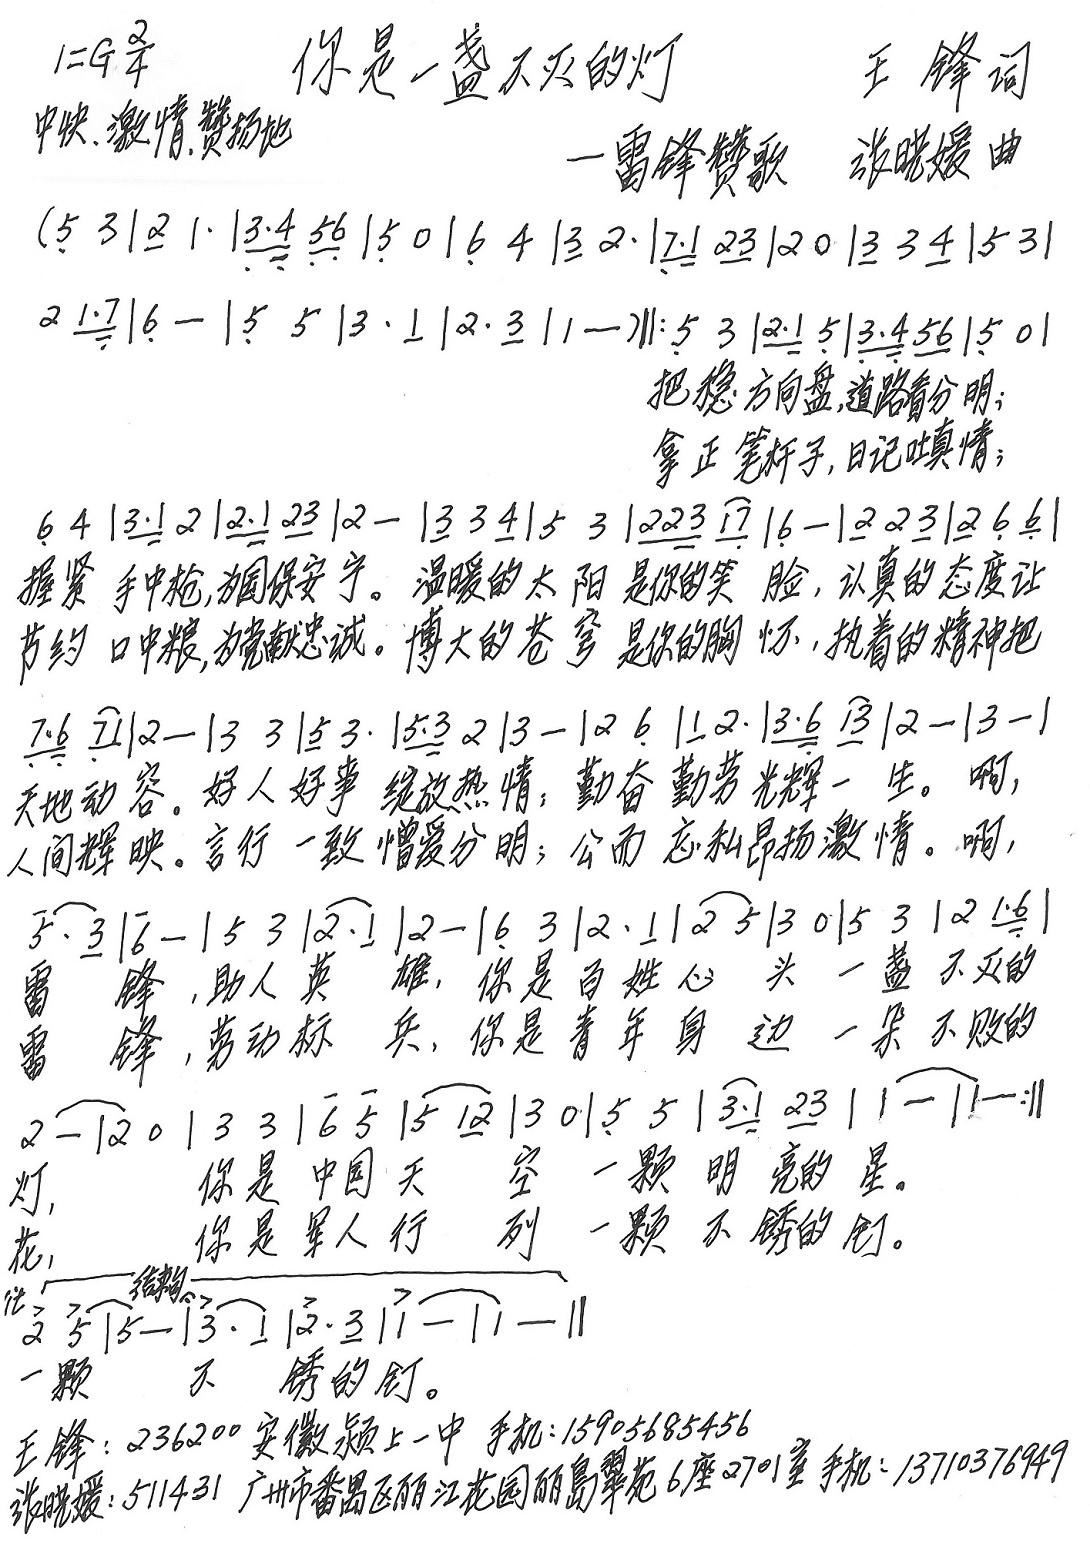 1=G 2/4 你是一盏不灭的灯 王锋词
中快、激情、赞扬地
—雷锋赞歌 张晓媛曲
(5 3|2 1·|3·4 56|5 0|6 4|3 2·|7·1 23|2 0|3 3 4|5 3|
2 1·7|6 —|5 5|3·1|2·3|1 —)‖:5 3|2·1 5|3·4 56|5 0|
把稳方向盘,道路看分明;
拿正笔杆子,日记吐真情;
6 4|3·1 2|2·1 23|2 —|3 3 4|5 3|223 17|6 —|2 2 3|2 6 6|
握紧手中枪,为国保安宁。温暖的太阳是你的笑脸,认真的态度让
节约口中粮,为党献忠诚。博大的苍穹是你的胸怀,执着的精神把
7·6 71|2 —|3 3|5 3·|5·3 2|3 —|2 6|1 2·|3·6 13|2 —|3 —|
天地动容。好人好事绽放热情;勤奋勤劳光辉一生。啊,
人间辉映。言行一致憎爱分明;公而忘私昂扬激情。啊,
5·3|6 —|5 3|2·1|2 —|6 3|2·1|2 5|3 0|5 3|2 1·6|
雷锋,助人英雄,你是百姓心头一盏不灭的
雷锋,劳动标兵,你是青年身边一朵不败的
2 —|2 0|3 3|6 5|5 12|3 0|5 5|3·1 23|1 —|1 —:‖
灯,你是中国天空一颗明亮的星。
花,你是军人行列一颗不锈的钉。
结束句
2 5|5 —|3·1|2·3|1 —|1 —‖
一颗不锈的钉。
王锋:236200 安徽颍上一中 手机:15905685456
张晓媛:511431 广州市番禺区丽江花园丽岛翠苑6座2701室 手机:13710376949